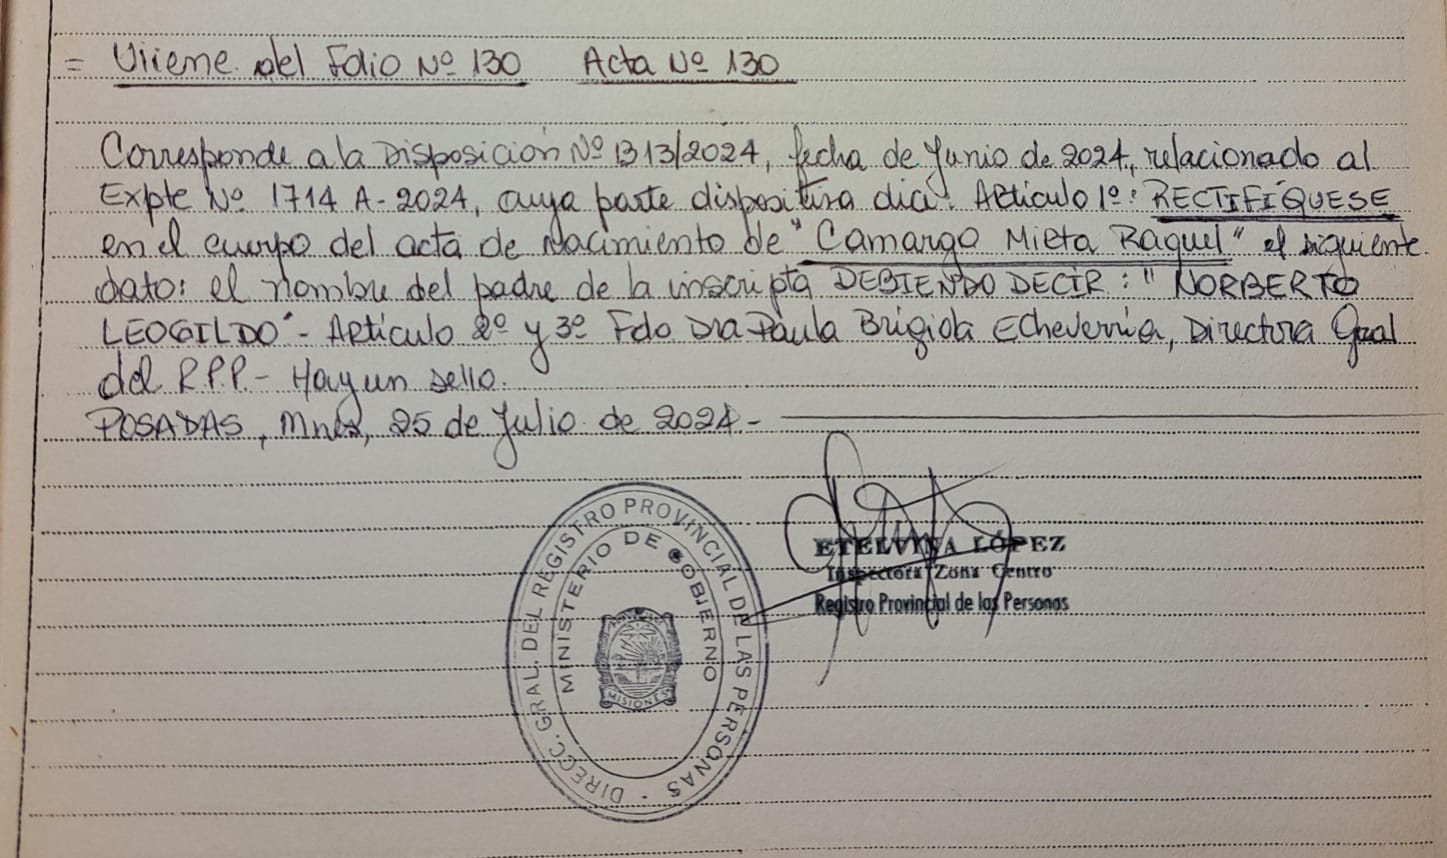 = Viiene del Folio Nº 130 Acta Nº 130
Corresponde a la Disposición Nº 1313/2024, fecha de Junio de 2024, relacionado al
Expte Nº 1714 A-2024, cuya parte dispositiva dice: Artículo 1º: RECTIFÍQUESE
en el cuerpo del acta de Nacimiento de "Camargo Mirta Raquel" el siguiente
dato: el nombre del padre de la inscripta DEBIENDO DECIR: "NORBERTO
LEOGILDO"- Artículo 2º y 3º Fdo Dra Paula Brigida Echeverria, Directora Gral
del R.P.P.- Hay un sello.
POSADAS, Mnes, 25 de Julio de 2024-
ETELVINA LÓPEZ
Inspectora Zona Centro
Registro Provincial de las Personas
DIRECC. GRAL. DEL REGISTRO PROVINCIAL DE LAS PERSONAS -
MINISTERIO DE GOBIERNO
MISIONES